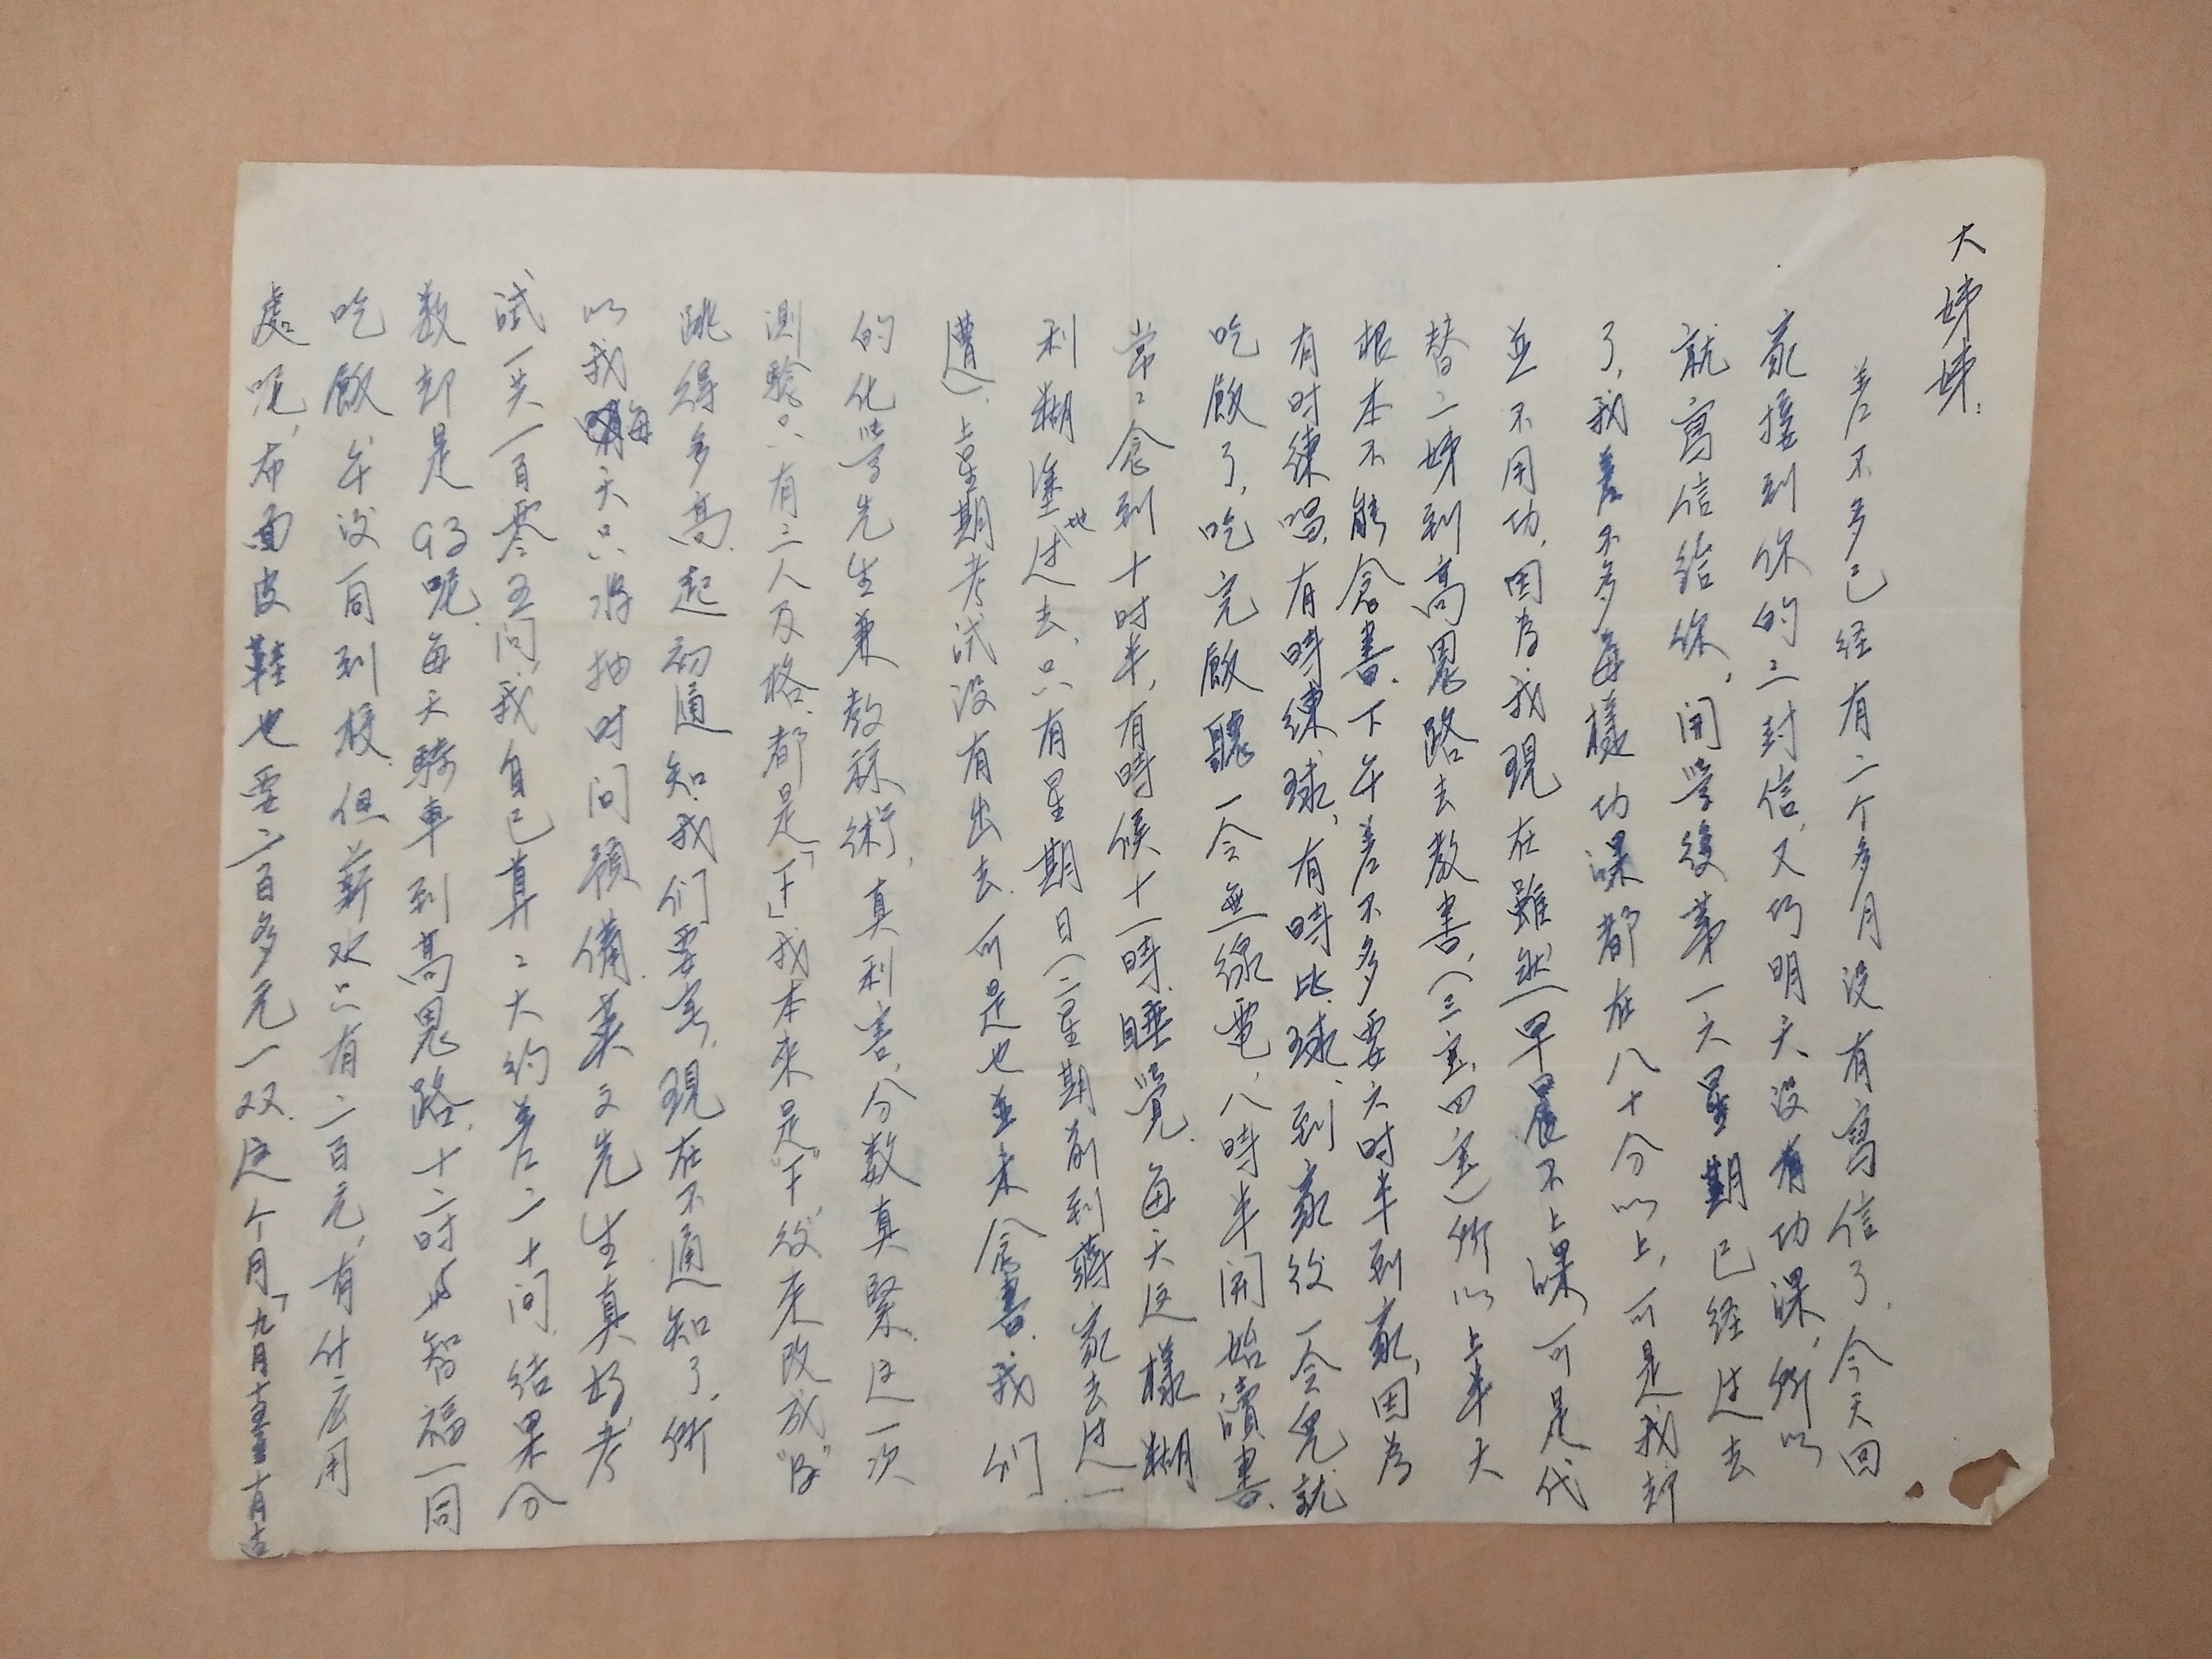 大姊姊：
差不多已经有二个多月没有寫信了，今天回
家接到你的二封信，又巧明天没有功课，所以
就寫信給你，開学後第一大星期已经过去
了，我差不多每樣功课都在八十分以上，可是我却
並不用功，因为我現在雖然早晨不上课，可是代
替二姊到高恩路去教書，（三室，四室）所以上半天
根本不能念書，下午差不多要六时半到家，因为
有时練唱，有時練球，有時比球，到家後一会兒就
吃飯了，吃完飯聽一会無線電，八時半開始讀書，
常〻念到十时半，有時候十一時睡覺，每天这樣糊
利糊塗地过去，只有星期日（二星期前到蔣家去过一
遭），上星期考试没有出去，可是也並未念書，我们
的化学先生兼教算術，真利害，分数真緊，这一次
測驗只有三人及格，都是「下」我本来是“下”後来改成“B”
跳得多高，起初通知我们要考，現在不通知了，所
以我每天只得抽时间預備，英文先生真好，考
试一共一百零五问，我自己算〻大约差二十问，结果分
数却是93呢，每天騎車到高恩路，十二时与智福一同
吃飯，午後一同到校，但薪水只有二百元，有什么用
處呢，布面皮鞋也要二百多元一双，这个月「九月十五至十月